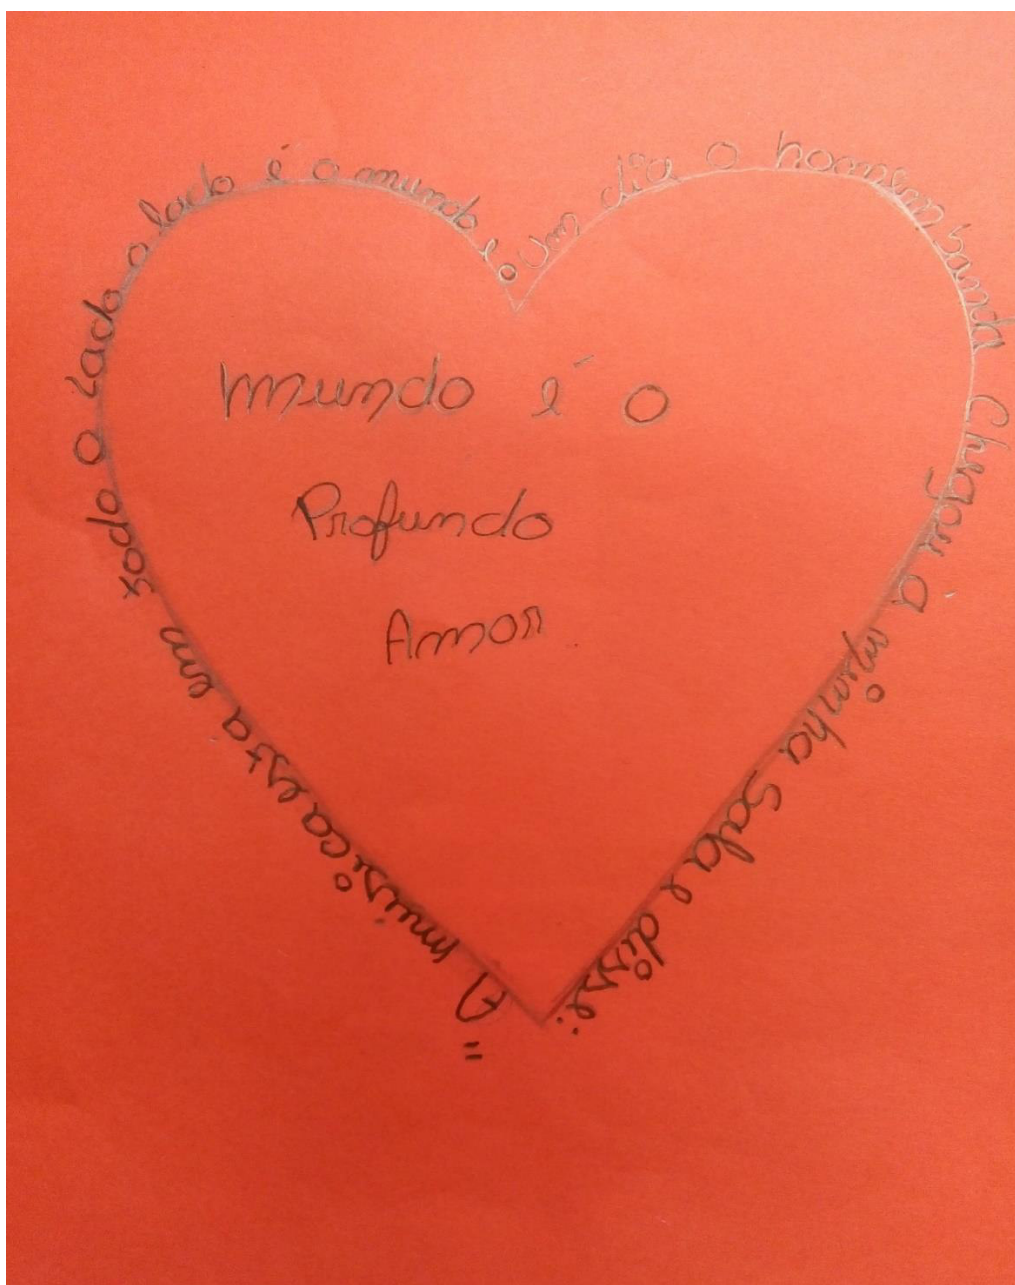 Um dia o homem banda Chegou á minha Sala e disse:
" A música está em todo o Lado o lado o lado é o mundo e o
Mundo é o
Profundo
Amor.